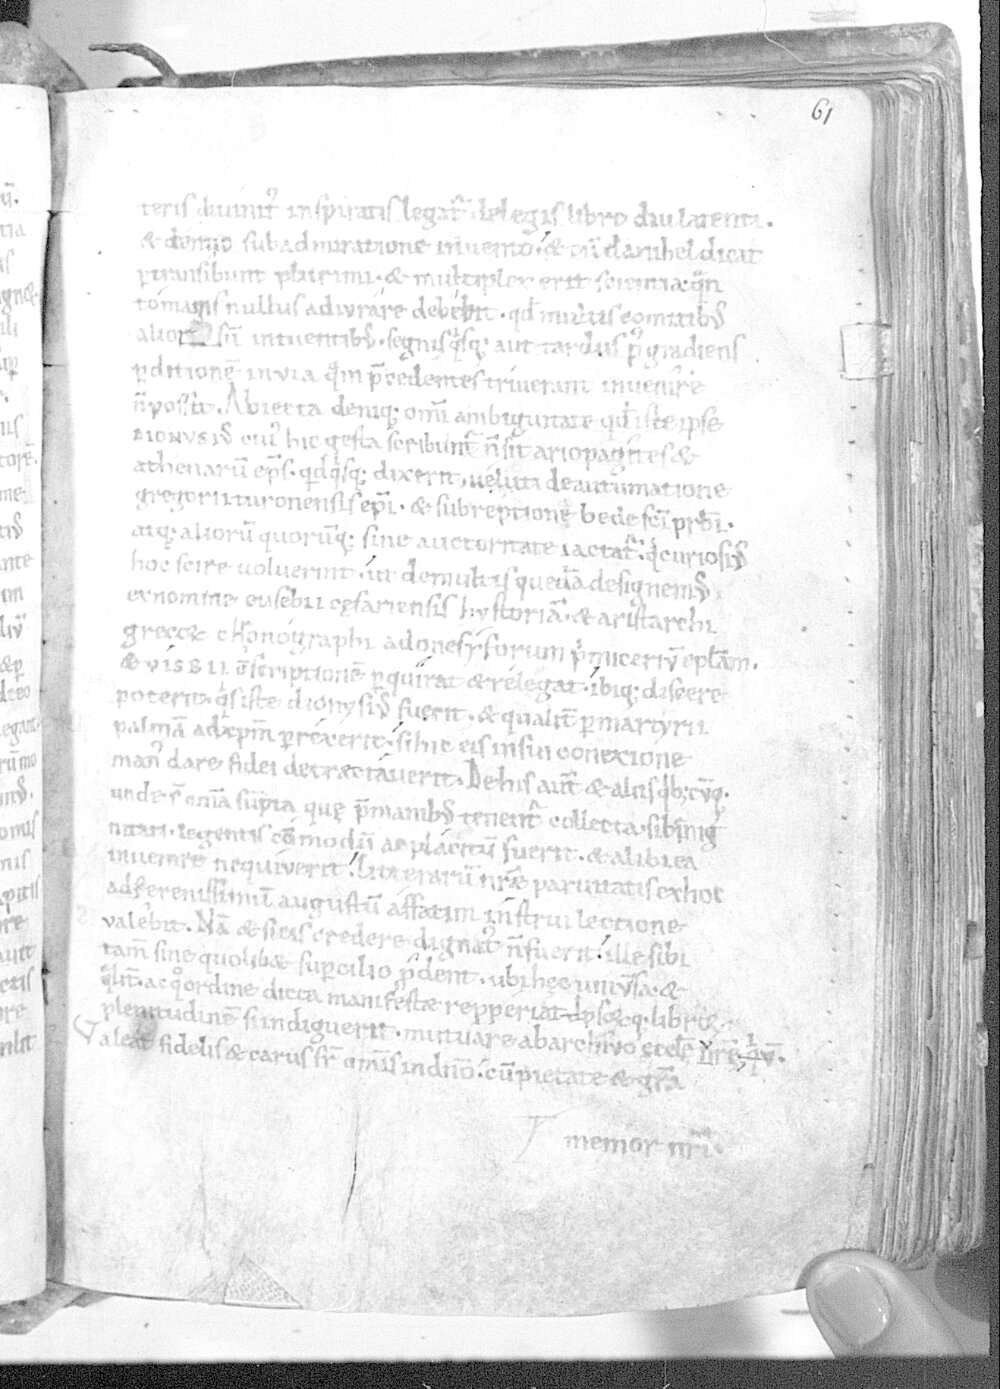 61
teris divinit᷒ inspiratis legat᷑. de legis libro diu latenti.
& denuo sub admiratione invento. & cū danihel dicat
ptransibunt plurimi. & multiplex erit scientia.
nullus adivrare debebit. qd multis eomitib᷒
alior sū intuentib᷒. segnis qsq; aut tardus pgradiens
pditionē in via qm pcedentes triverant invenire
n possit. Abiecta deniq; omi ambiguitate qd iste ipse
DIONVSI᷒ cui᷒ hic gesta scribunt᷑ n sit ariopagites &
athenarū eps. qdqsq; dixerit. veluti de autumatione
gregorii turonensis epi. & subreptione bede sci prbi.
atq; aliorū quorūq; sine auctoritate iactat᷑. q curiosi᷒
hoc scire voluerint. ut de multis quedā designem᷒
ex nomine eusebii cesariensis hystoriā. & aristarchi
grecę chronographi ad onesiforum pmiceriū eplam.
& VISBII cscriptionē pquirat & relegat. ibiq; discere
poterit. qs iste dionysi᷒ fuerit. & qualit p martyrii
palmā ad xpm prexerit. si hic eis in sui conexione
man᷒ dare fidei detrectaverit. De his aut & aliis qb; cūq.
unde st oma supra que pmanib᷒ tenent᷑ collecta. sibi
legentis cōmodū ac placitū fuerit. & alibi ea
invenire nequiverit. litterarū nrę parvitatis ex hoc
ad serenissimū augustū affatim instrui lectione
valebit. Nā & si eis credere dignat᷒ n fuerit. ille sibi
tam sine quolibet supcilio pdent. ubi hęc univsa. &
qlit. ac qo ordine dicta manifeste repperiat. & libris
plenitudinē si indiguerit. mutuare ab archivo eccle nrę
Valeat fidelis & carus fr omis in dno. cū pietate & gra
memor nri.